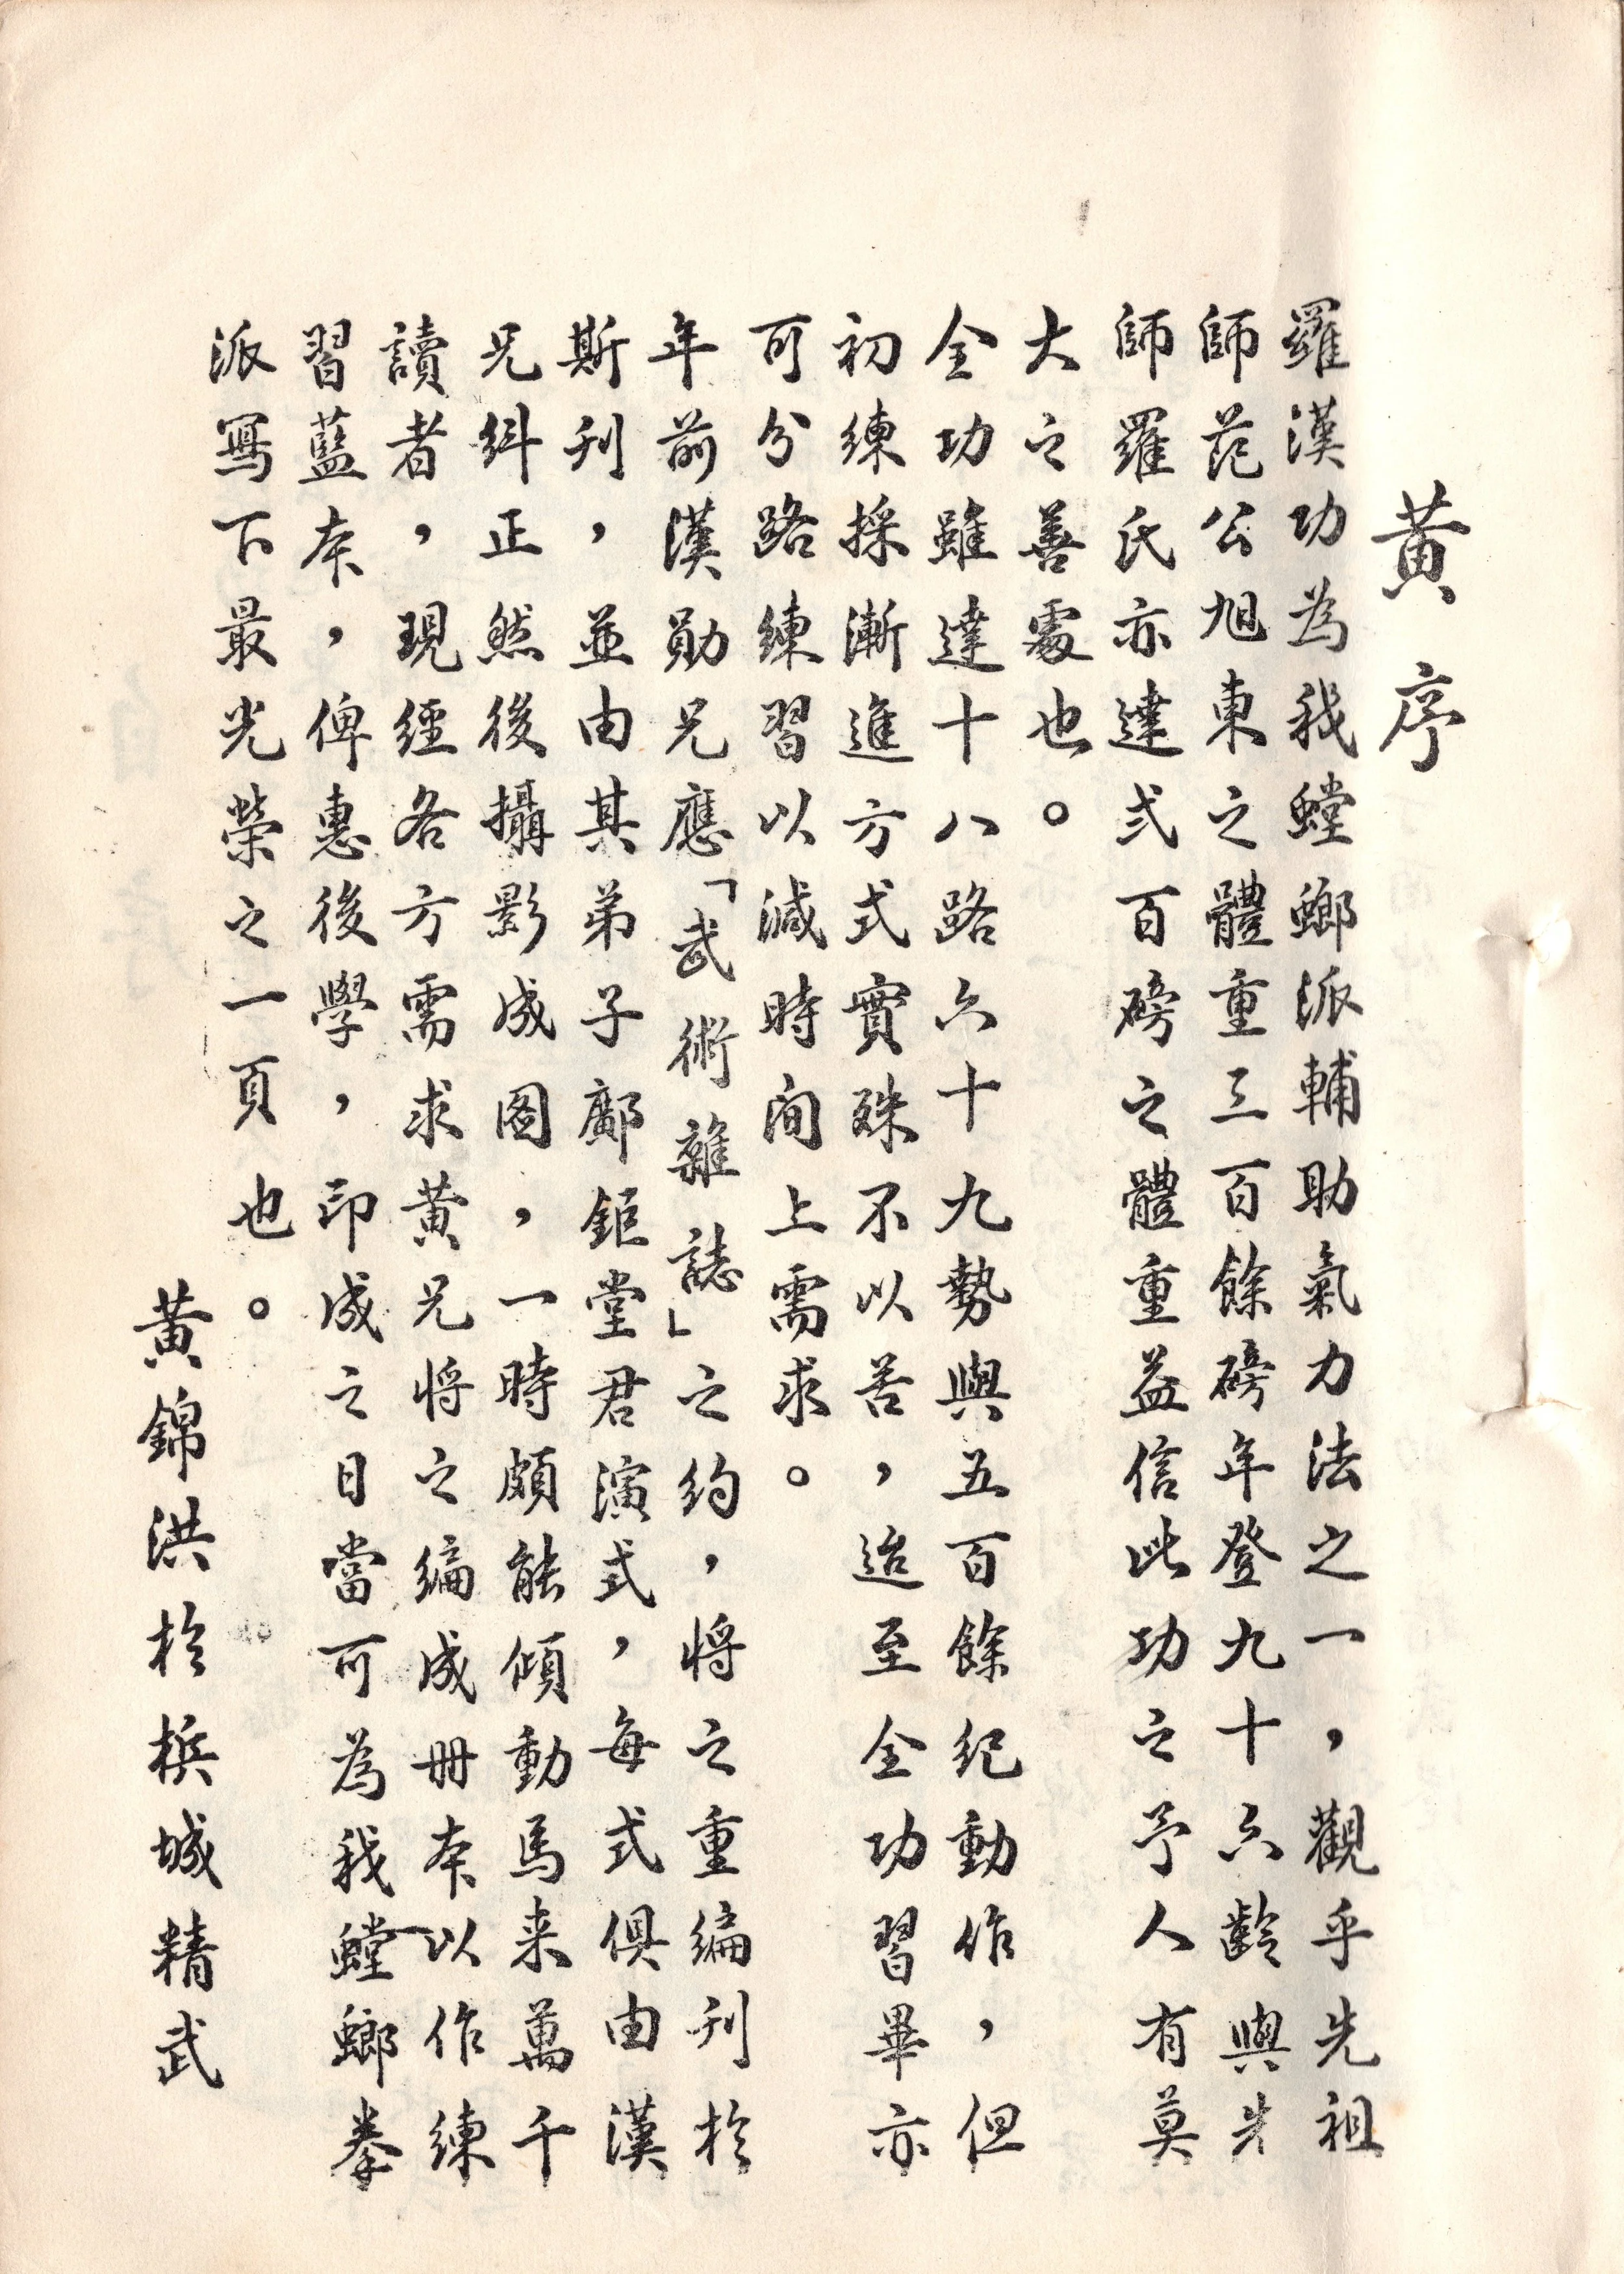 黃序
羅漢功為我螳螂派輔助氣力法之一，觀乎先祖
師范公旭東之體重三百餘磅年登九十六齡與先
師羅氏亦達弍百磅之體重益信此功之予人有莫
大之善處也。
全功雖達十八路六十九勢與五百餘紀動作，但
初練採漸進方式實殊不以苦，迨至全功習畢亦
可分路練習以減時间上需求。
年前漢勛兄應「武術雜誌」之約，将之重編刊於
斯刊，並由其弟子鄺鉅堂君演式，每式俱由漢
兄糾正然後攝影成图，一時頗能傾動馬来萬千
讀者，現經各方需求黃兄将之編成冊本以作練
習藍本，俾惠後學，印成之日當可為我螳螂拳
派寫下最光榮之一頁也。
黃錦洪於梹城精武